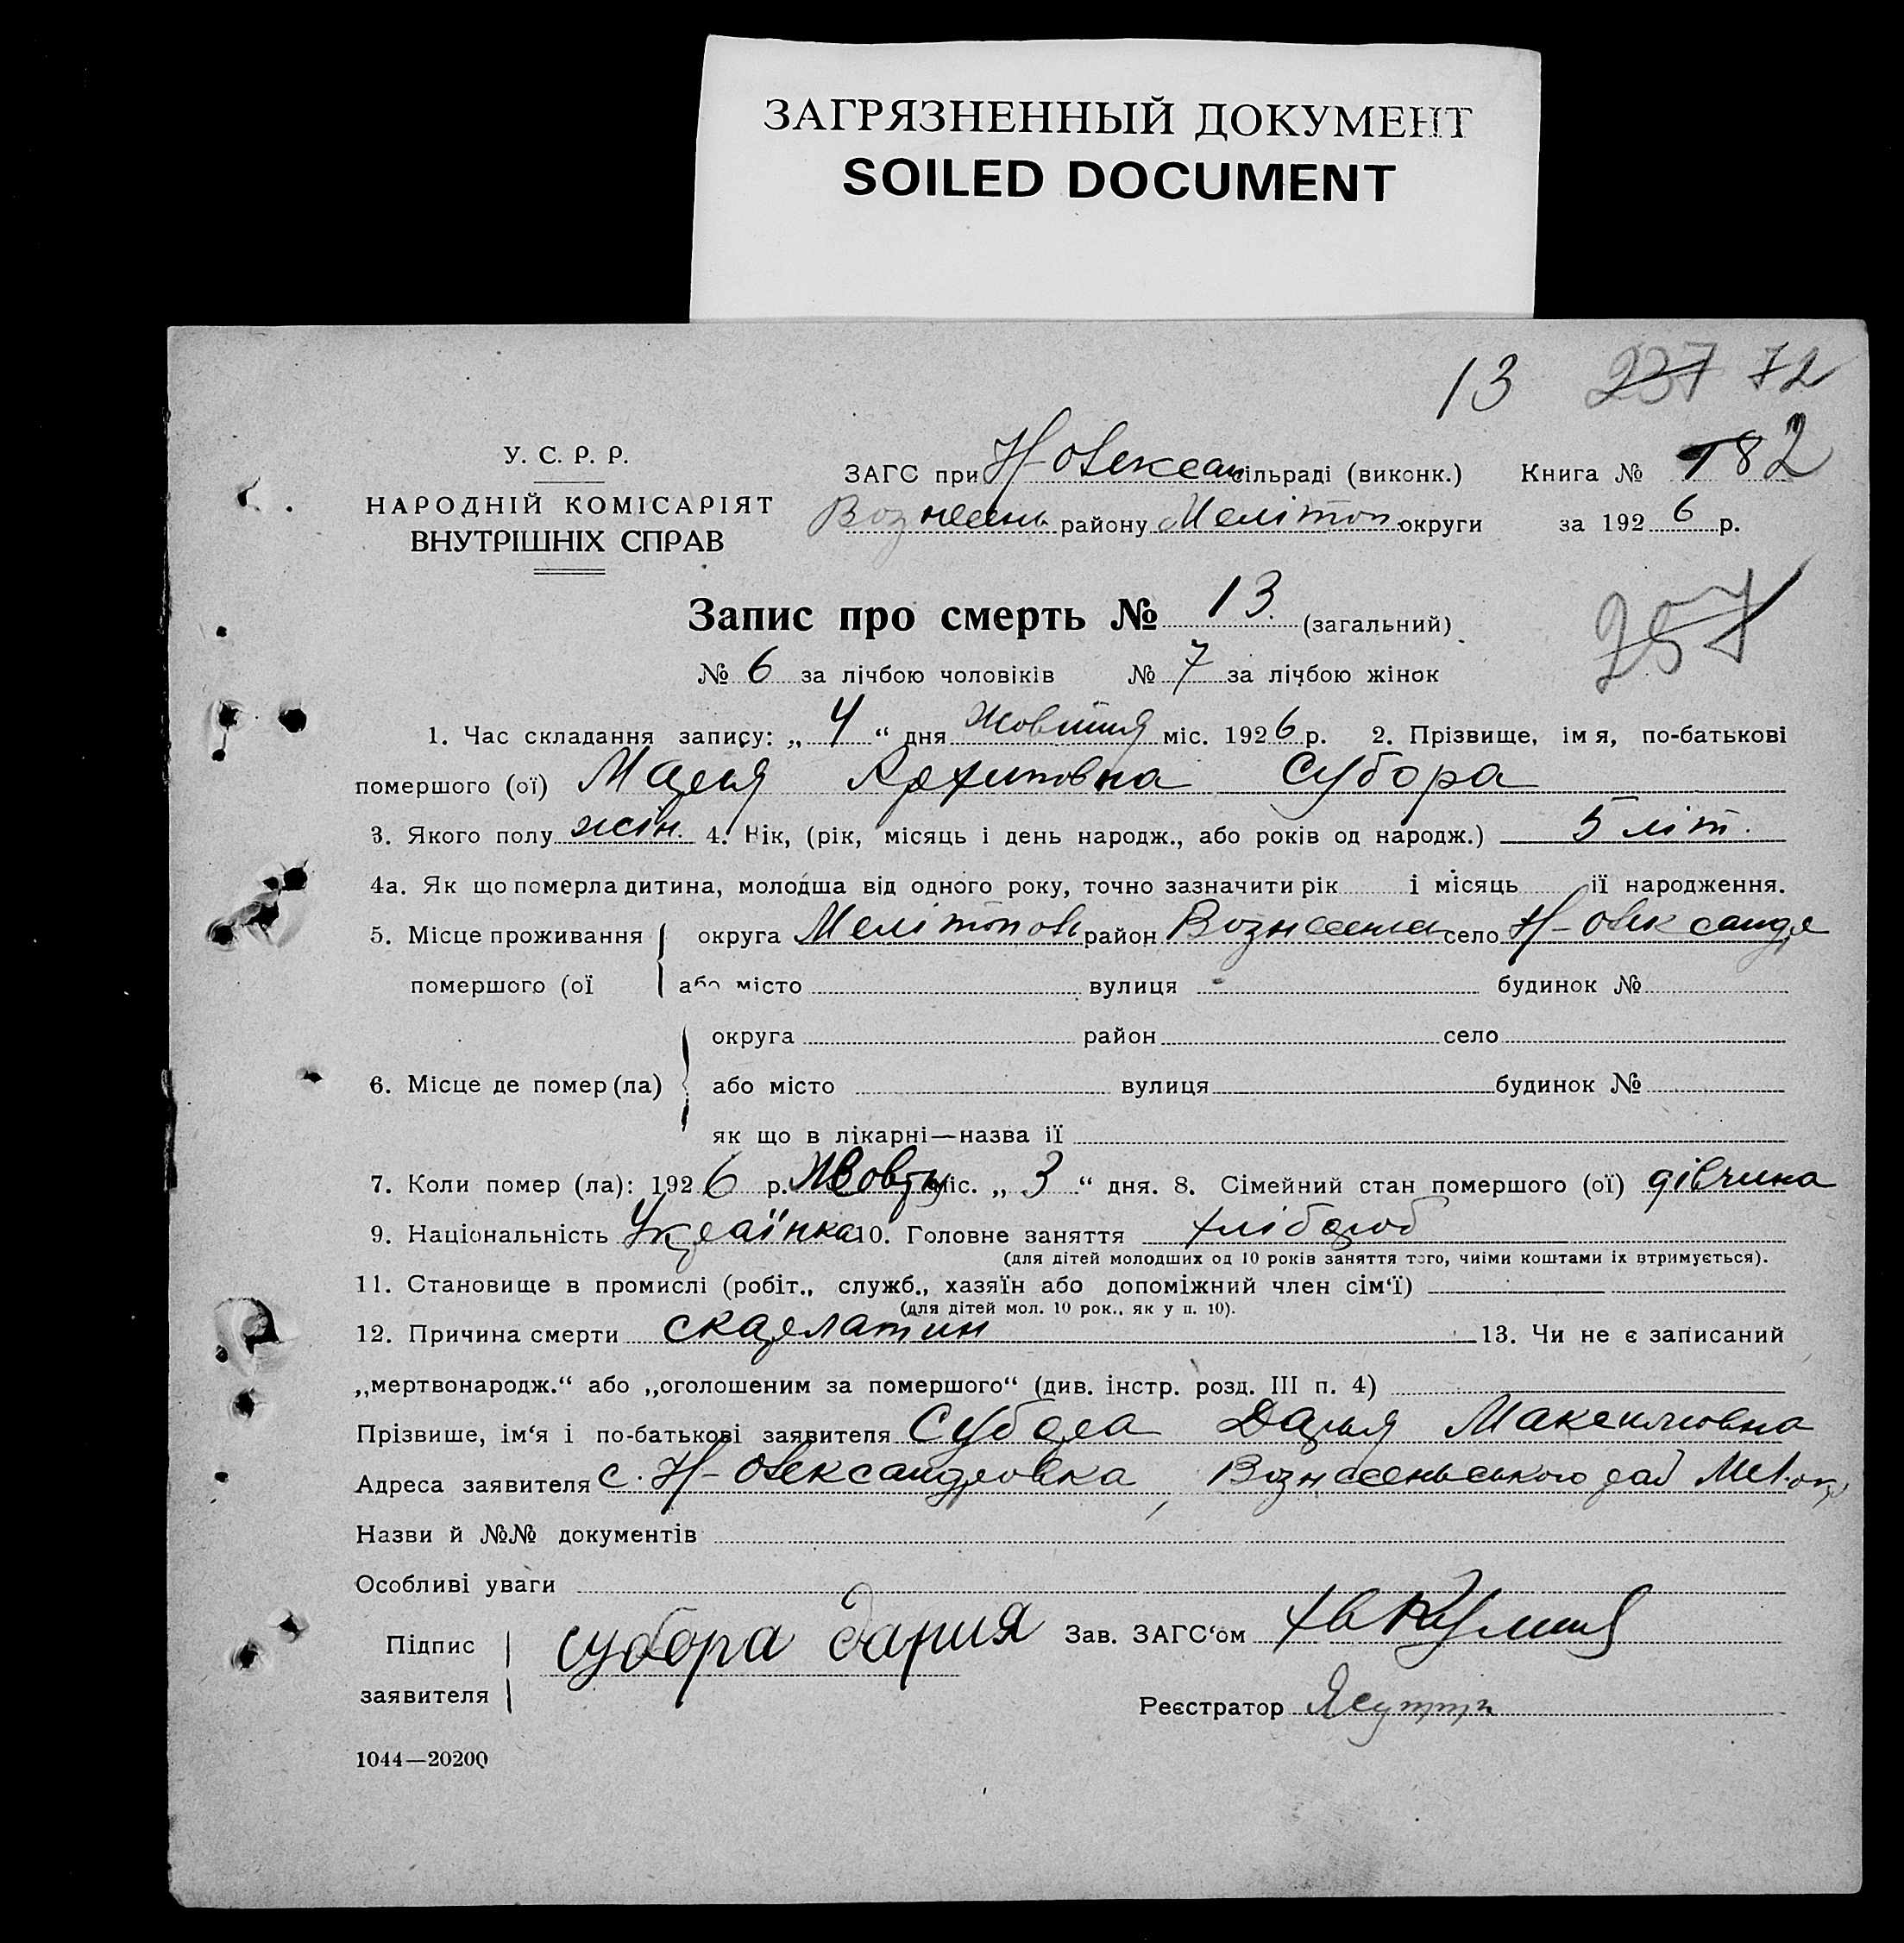 ЗАГРЯЗНЕННЫЙ ДОКУМЕНТ
SOILED DOCUMENT
13 237 72
У. С. Р. Р.
НАРОДНІЙ КОМІСАРІЯТ
ВНУТРІШНІХ СПРАВ
ЗАГС при Н-Олексан сільраді (виконк.) Книга № 182
Вознесень району Мелітоп округи за 1926 р.
257
Запис про смерть № 13. (загальний)
№ 6 за лічбою чоловіків № 7 за лічбою жінок
1. Час складання запису: „ 4 “ дня Жовтня міс. 1926 р. 2. Прізвище, імя, по-батькові
помершого (ої) Марія Архиповна Субора
3. Якого полу жін. 4. Вік, (рік, місяць і день народж., або років од народж.) 5 літ.
4а. Як що померла дитина, молодша від одного року, точно зазначити рік і місяць її народження.
5. Місце проживання округа Мелітоповь район Вознесенськ село Н-Олександр
помершого (ої або місто вулиця будинок №
округа район село
6. Місце де помер (ла) або місто вулиця будинок №
як що в лікарні—назва її
7. Коли помер (ла): 1926 р. Жовтн міс. „ 3 “ дня. 8. Сімейний стан помершого (ої) дівчина
9. Національність Українка 10. Головне заняття хлібороб
(для дітей молодших од 10 років заняття того, чиїми коштами їх втримується).
11. Становище в промислі (робіт., служб., хазяїн або допоміжний член сім‘ї)
(для дітей мол. 10 рок., як у п. 10).
12. Причина смерти скарлатин 13. Чи не є записаний
„мертвонародж.“ або „оголошеним за помершого“ (див. інстр. розд. III п. 4)
Прізвише, ім‘я і по-батькові заявителя Субора Дарья Максимовна
Адреса заявителя с. Н-Олександровка, Вознесеньського рай Мел. окр
Назви й №№ документів
Особливі уваги
Підпис заявителя субора дария Зав. ЗАГС‘ом
Реєстратор
1044—20200